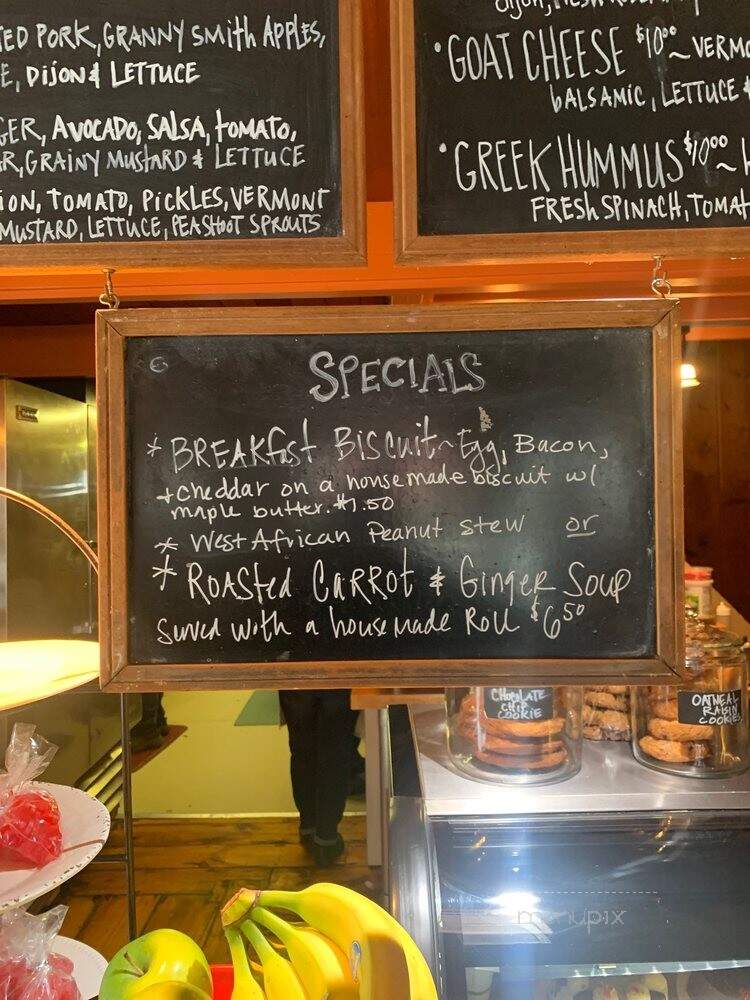 TED PORK, GRANNY SMITH APPLES,
E, DIJON & LETTUCE
GER, AVOCADO, SALSA, TOMATO,
R, GRAINY MUSTARD & LETTUCE
ION, TOMATO, PICKLES, VERMONT
MUSTARD, LETTUCE, PEASHOOT SPROUTS
• GOAT CHEESE $10.00 ~ VERMO
BALSAMIC, LETTUCE &
• GREEK HUMMUS $10.00 ~
FRESH SPINACH, TOMAT
SPECIALS
* BREAKfast BIScuit ~ Egg, Bacon,
+ cheddar on a housemade biscuit w/
maple butter. $7.50
* West African Peanut stew or
* ROASTED CARROT & GINgER SOUP
Served with a housemade Roll $6.50
CHOCOLATE
CHIP
COOKIE
OATMEAL
RAISIN
COOKIES
menupix